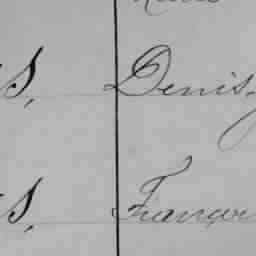 S, Denis,
S, Françoi